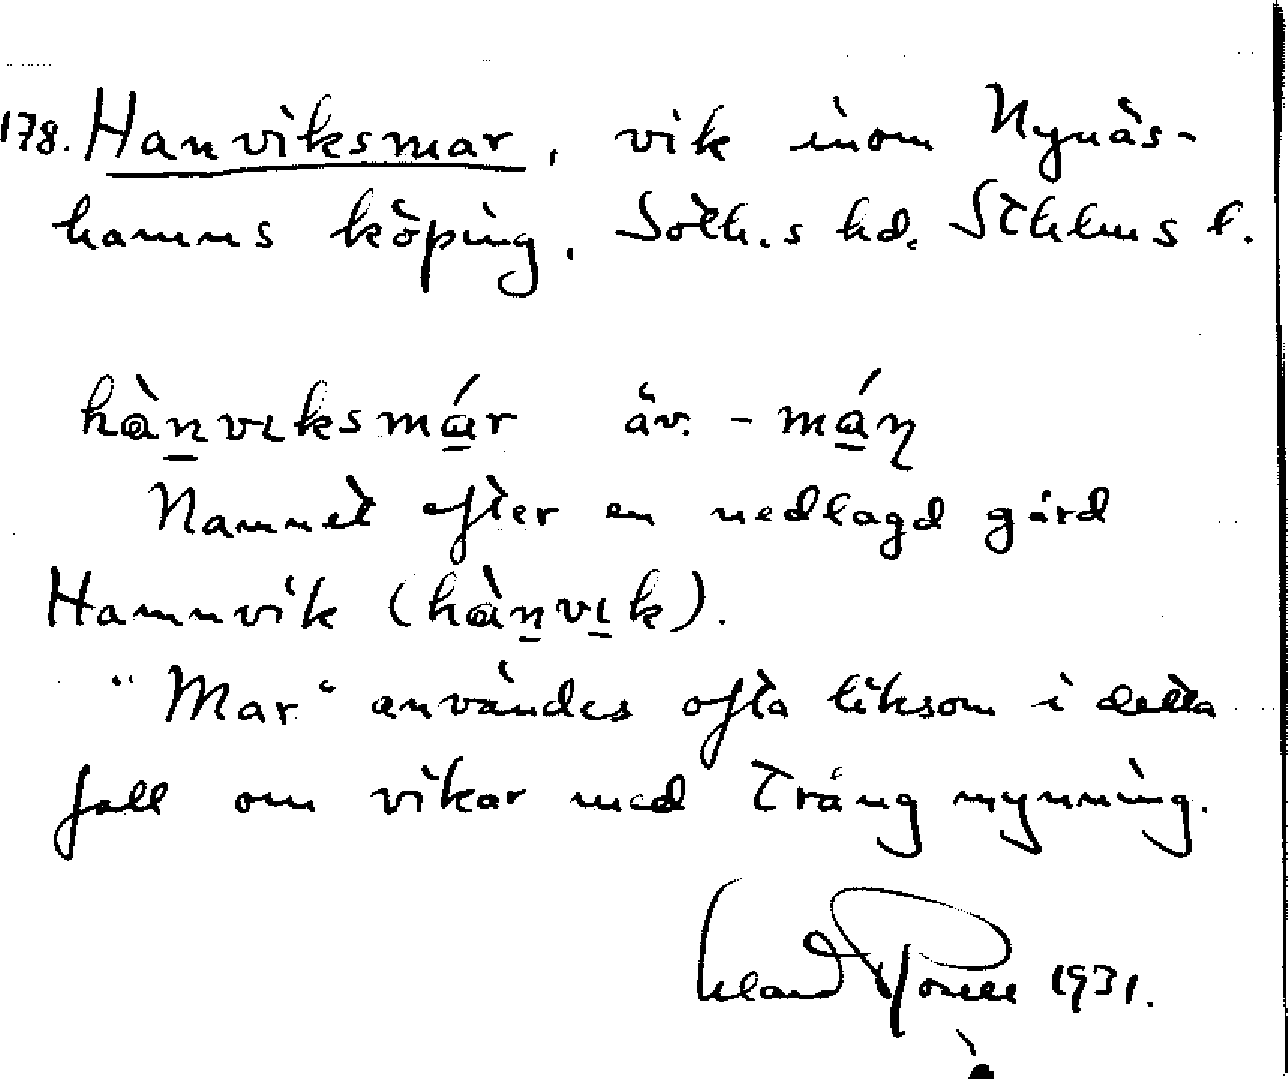 178. Hanviksmar, vik inom Nynäs-
hamns köping, Soth.s hd. Sthlms l.
hànvıksmár äv. -máņ
Namnet efter en nedlagd gård
Hamnvik (hànvık).
"Mar" användes ofta liksom i detta
fall om vikar med trång mynning.
1931.